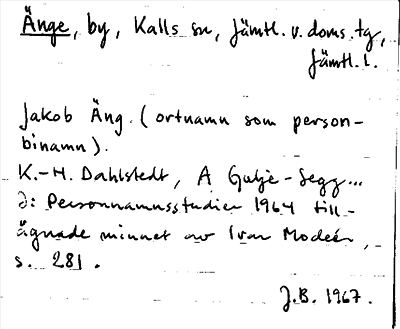 Änge, by, Kalls sn, Jämtl. v. doms. tg,
Jämtl. l.
Jakob Äng. (ortnamn som person-
binamn).
K.-H. Dahlstedt, A Gubje-Segg...
i: Personnamnsstudier 1964 till-
ägnade minnet av Ivar Modéer,
s. 281.
J.B. 1967.